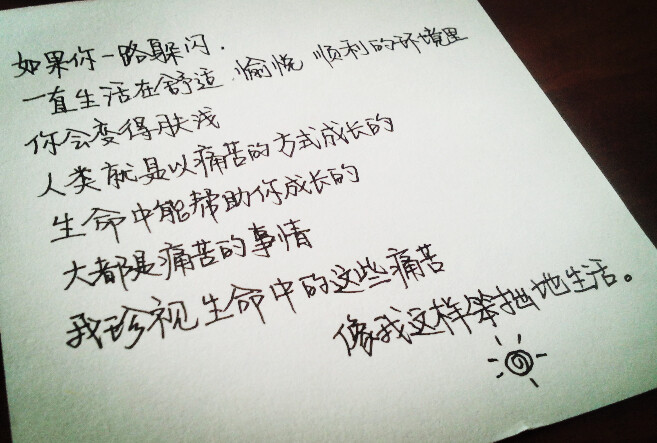 如果你一路躲闪.
一直生活在舒适、愉悦、顺利的环境里
你会变得肤浅
人类就是以痛苦的方式成长的
生命中能帮助你成长的
大都是痛苦的事情
我珍视生命中的这些痛苦
像我这样笨拙地生活。